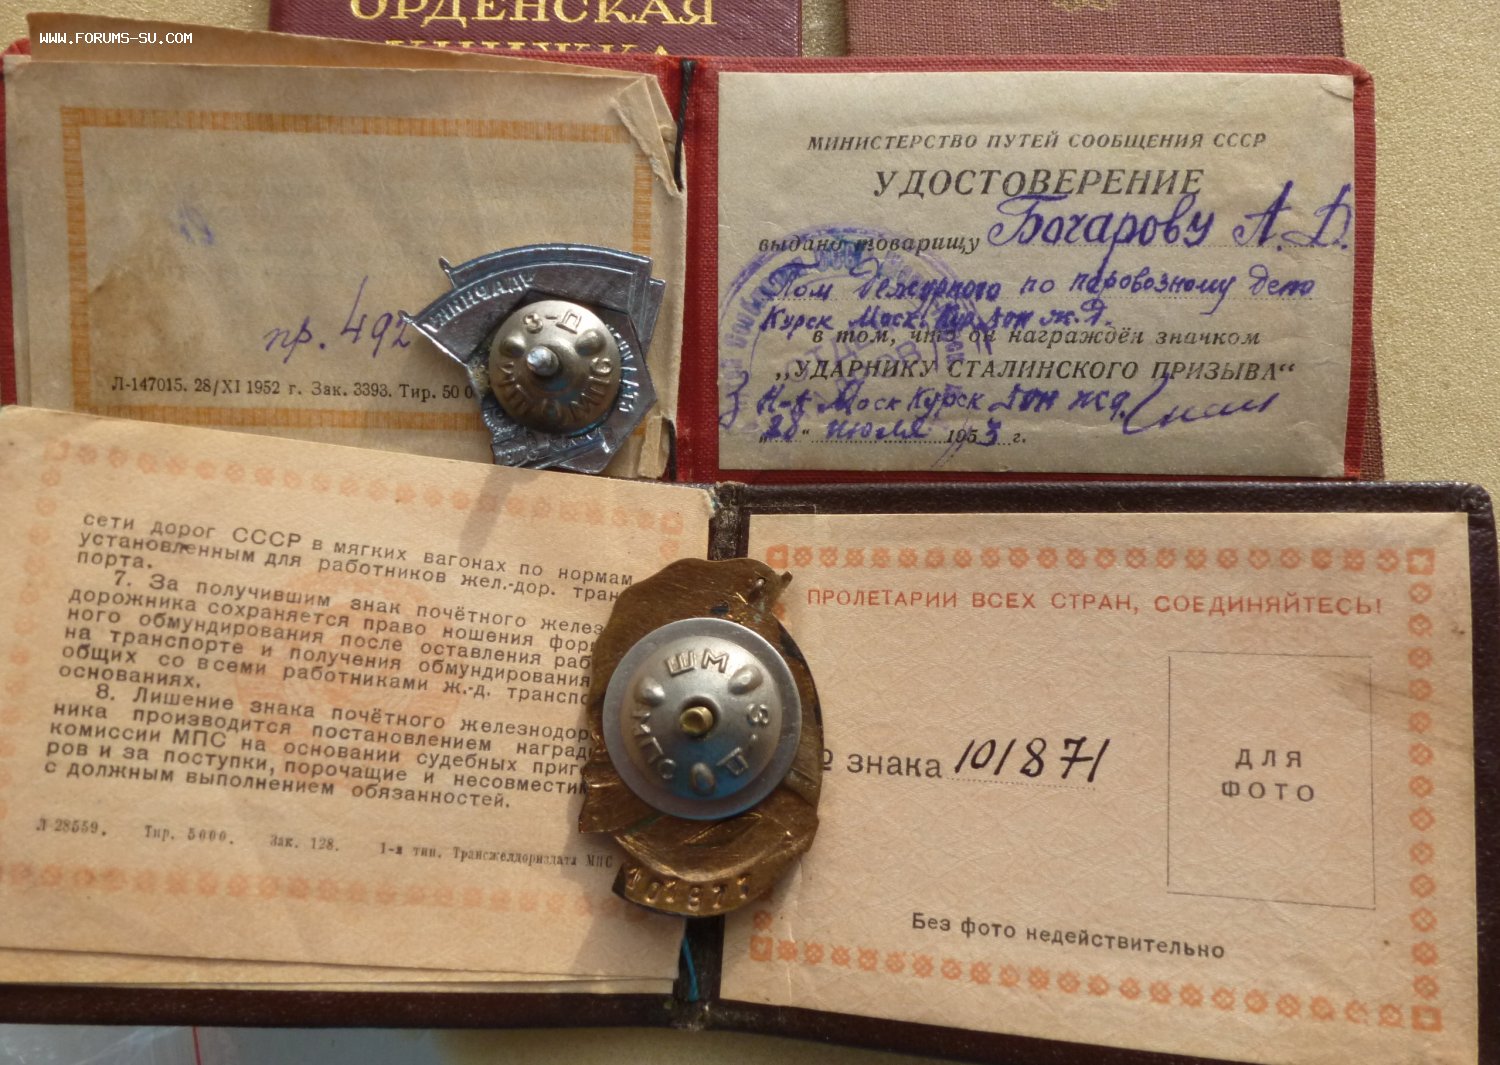 WWW.FORUMS-SU.COM
ОРДЕНСКАЯ
КНИЖКА
пр. 492
Л-147015. 28/XI 1952 г. Зак. 3393. Тир. 50 0
З-Д
МПС
МИНИСТЕРСТВО ПУТЕЙ СООБЩЕНИЯ СССР
УДОСТОВЕРЕНИЕ
выдано товарищу Бочарову А. Д.
Пом дежурного по паровозному депо
Курск Моск. Кур. Дон ж. д.
в том, что он награждён значком
„УДАРНИКУ СТАЛИНСКОГО ПРИЗЫВА“
Н-к Моск Курск Дон жд.
„28“ июля 1953 г.
сети дорог СССР в мягких вагонах по нормам,
установленным для работников жел.-дор. транс
порта.
7. За получившим знак почётного желез
дорожника сохраняется право ношения фор
ного обмундирования после оставления раб
на транспорте и получения обмундирования
общих со всеми работниками ж.-д. транспо
основаниях.
8. Лишение знака почётного железнодор
ника производится постановлением награди
комиссии МПС на основании судебных приг
ров и за поступки, порочащие и несовмести
с должным выполнением обязанностей.
Л 28559. Тир. 5000. Зак. 128. 1-я тип. Трансжелдориздата МПС
ШМ
З-Д
МПС
101871
ПРОЛЕТАРИИ ВСЕХ СТРАН, СОЕДИНЯЙТЕСЬ!
знака 101871
ДЛЯ
ФОТО
Без фото недействительно